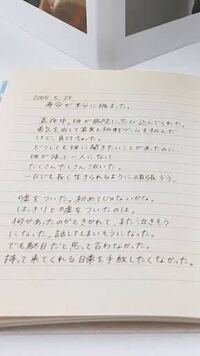 2009.5.24
寿命が半分に縮まった。
真夜中、彼が病院に忍び込んでくれた。
勇気を出して
けど、負けちゃった。
どうしても彼に聞きたいことがあったのに。
彼が帰って一人になって
たくさんたくさん泣いた。
一日でも長く生きられるように頑張ろう。
嘘をついた。初めてじゃないかな。
はっきりと嘘をついたのは。
何があったのかときかれて、また泣きそう
になった。話してしまいそうになった。
でも駄目だと思って言わなかった。
持って来てくれる日常を手放したくなかった。